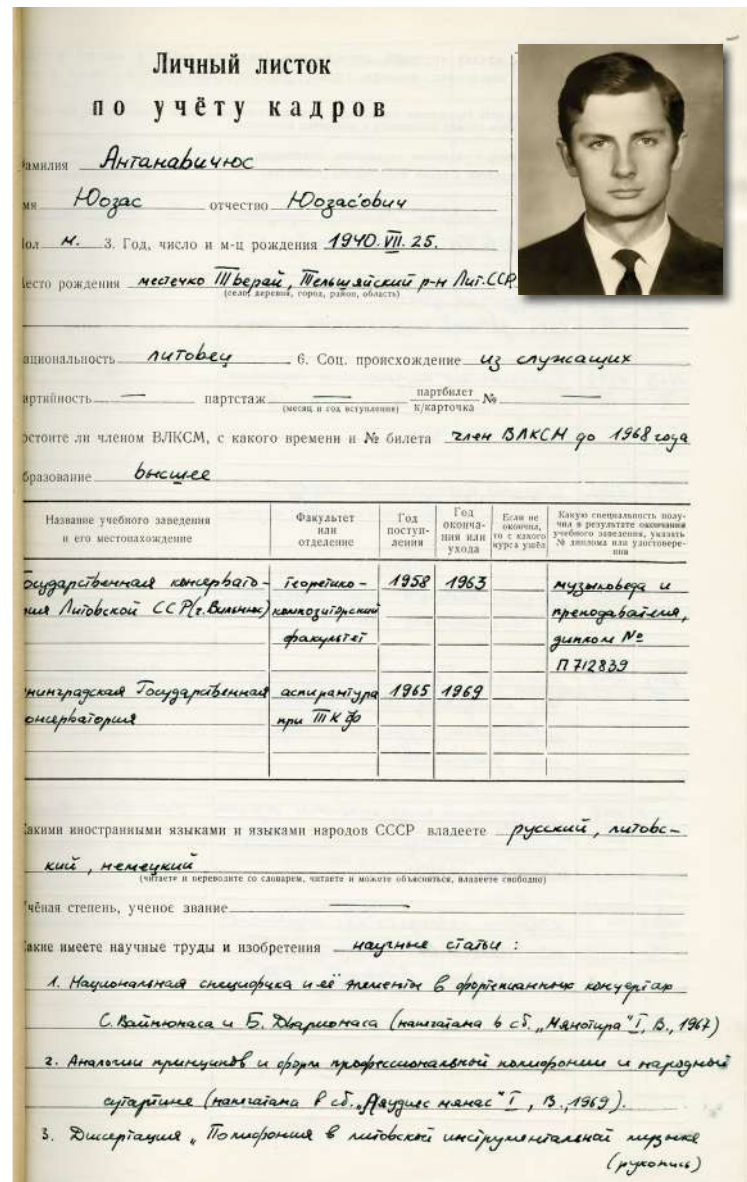 Личный листок
по учёту кадров
амилия Антанавичюс
мя Юозас отчество Юозас'ович
ол м. 3. Год, число и м-ц рождения 1940. VII. 25.
есто рождения местечко Тверай, Тельшяйский р-н Лит.ССР
(село, деревня, город, район, область)
ациональность литовец 6. Соц. происхождение из служащих
артийность — партстаж — партбилет
(месяц и год вступления) к/карточка № —
остоите ли членом ВЛКСМ, с какого времени и № билета член ВЛКСМ до 1968 года
бразование высшее
Название учебного заведения и его местонахождение
Факультет или отделение
Год поступ- ления
Год оконча- ния или ухода
Если не окончил, то с какого курса ушёл
Какую специальность полу- чил в результате окончания учебного заведения, указать № диплома или удостовере- ния
осударственная консервато- теоретико- 1958 1963 музыковеда и
рия Литовской ССР(г.Вильнюс) композиторский преподавателя,
факультет диплом №
П 712839
енинградская Государственная аспирантура 1965 1969
онсерватория при ТКФ
акими иностранными языками и языками народов СССР владеете русский, литовс-
кий, немецкий
(читаете и переводите со словарем, читаете и можете объясниться, владеете свободно)
чёная степень, ученое звание —
акие имеете научные труды и изобретения научные статьи :
1. Национальная специфика и её элементы в фортепианных концертах
С. Вайнюнаса и Б. Дварионаса (напечатана в сб. „Мянотира" I, В., 1967)
2. Аналогии принципов и форм профессиональной полифонии и народной
сутартине (напечатана в сб. „Ляудиес мянас" I, В., 1969).
3. Диссертация „Полифония в литовской инструментальной музыке
(рукопись)